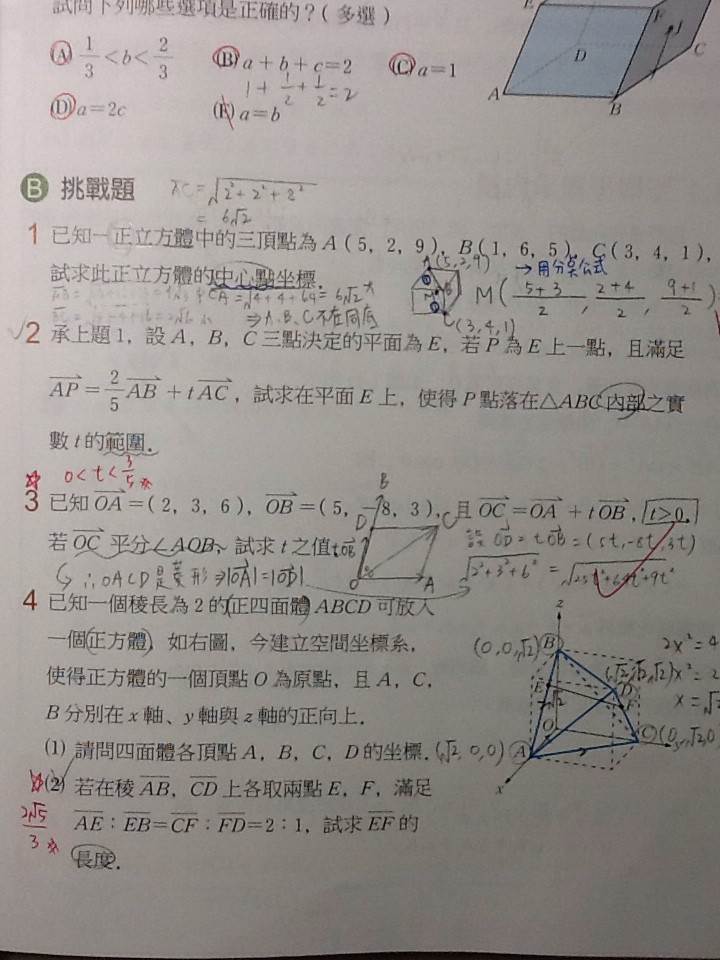 試問下列哪些選項是正確的？(多選)
(A) 1/3 < b < 2/3 (B) a + b + c = 2 (C) a = 1
1 + 1/2 + 1/2 = 2
(D) a = 2c (E) a = b
E F J D C A B
B 挑戰題
AC = √(2²+2²+8²)
= 6√2
1 已知一正立方體中的三頂點為 A(5, 2, 9), B(1, 6, 5), C(3, 4, 1),
試求此正立方體的中心點坐標.
A(5,2,9) →用分點公式
M( (5+3)/2 , (2+4)/2 , (9+1)/2 )
CA = √(4+4+64) = 6√2
⇒ A、B、C不在同面
C(3,4,1)
2 承上題1, 設 A, B, C 三點決定的平面為 E, 若 P 為 E 上一點, 且滿足
AP = 2/5 AB + t AC, 試求在平面 E 上, 使得 P 點落在△ABC 內部之實
數 t 的範圍.
0 < t < 3/5
3 已知 OA = (2, 3, 6), OB = (5, -8, 3), 且 OC = OA + t OB, t>0.
若 OC 平分∠AOB, 試求 t 之值.
B D C tOB O A
設 OD = tOB = (5t, -8t, 3t)
↳ ∴OACD是菱形⇒|OA|=|OD|
√(2²+3²+6²) = √(25t²+64t²+9t²)
4 已知一個稜長為 2 的正四面體 ABCD 可放入
一個正方體, 如右圖, 今建立空間坐標系,
使得正方體的一個頂點 O 為原點, 且 A, C,
B 分別在 x 軸、y 軸與 z 軸的正向上.
(1) 請問四面體各頂點 A, B, C, D 的坐標.
(2) 若在稜 AB, CD 上各取兩點 E, F, 滿足
AE : EB = CF : FD = 2 : 1, 試求 EF 的
長度.
2√5/3
z
(0,0,√2) B
(√2,√2,√2)
E D F O
C (0,√2,0)
(√2,0,0) A
x
2x² = 4
x² = 2
x = √2